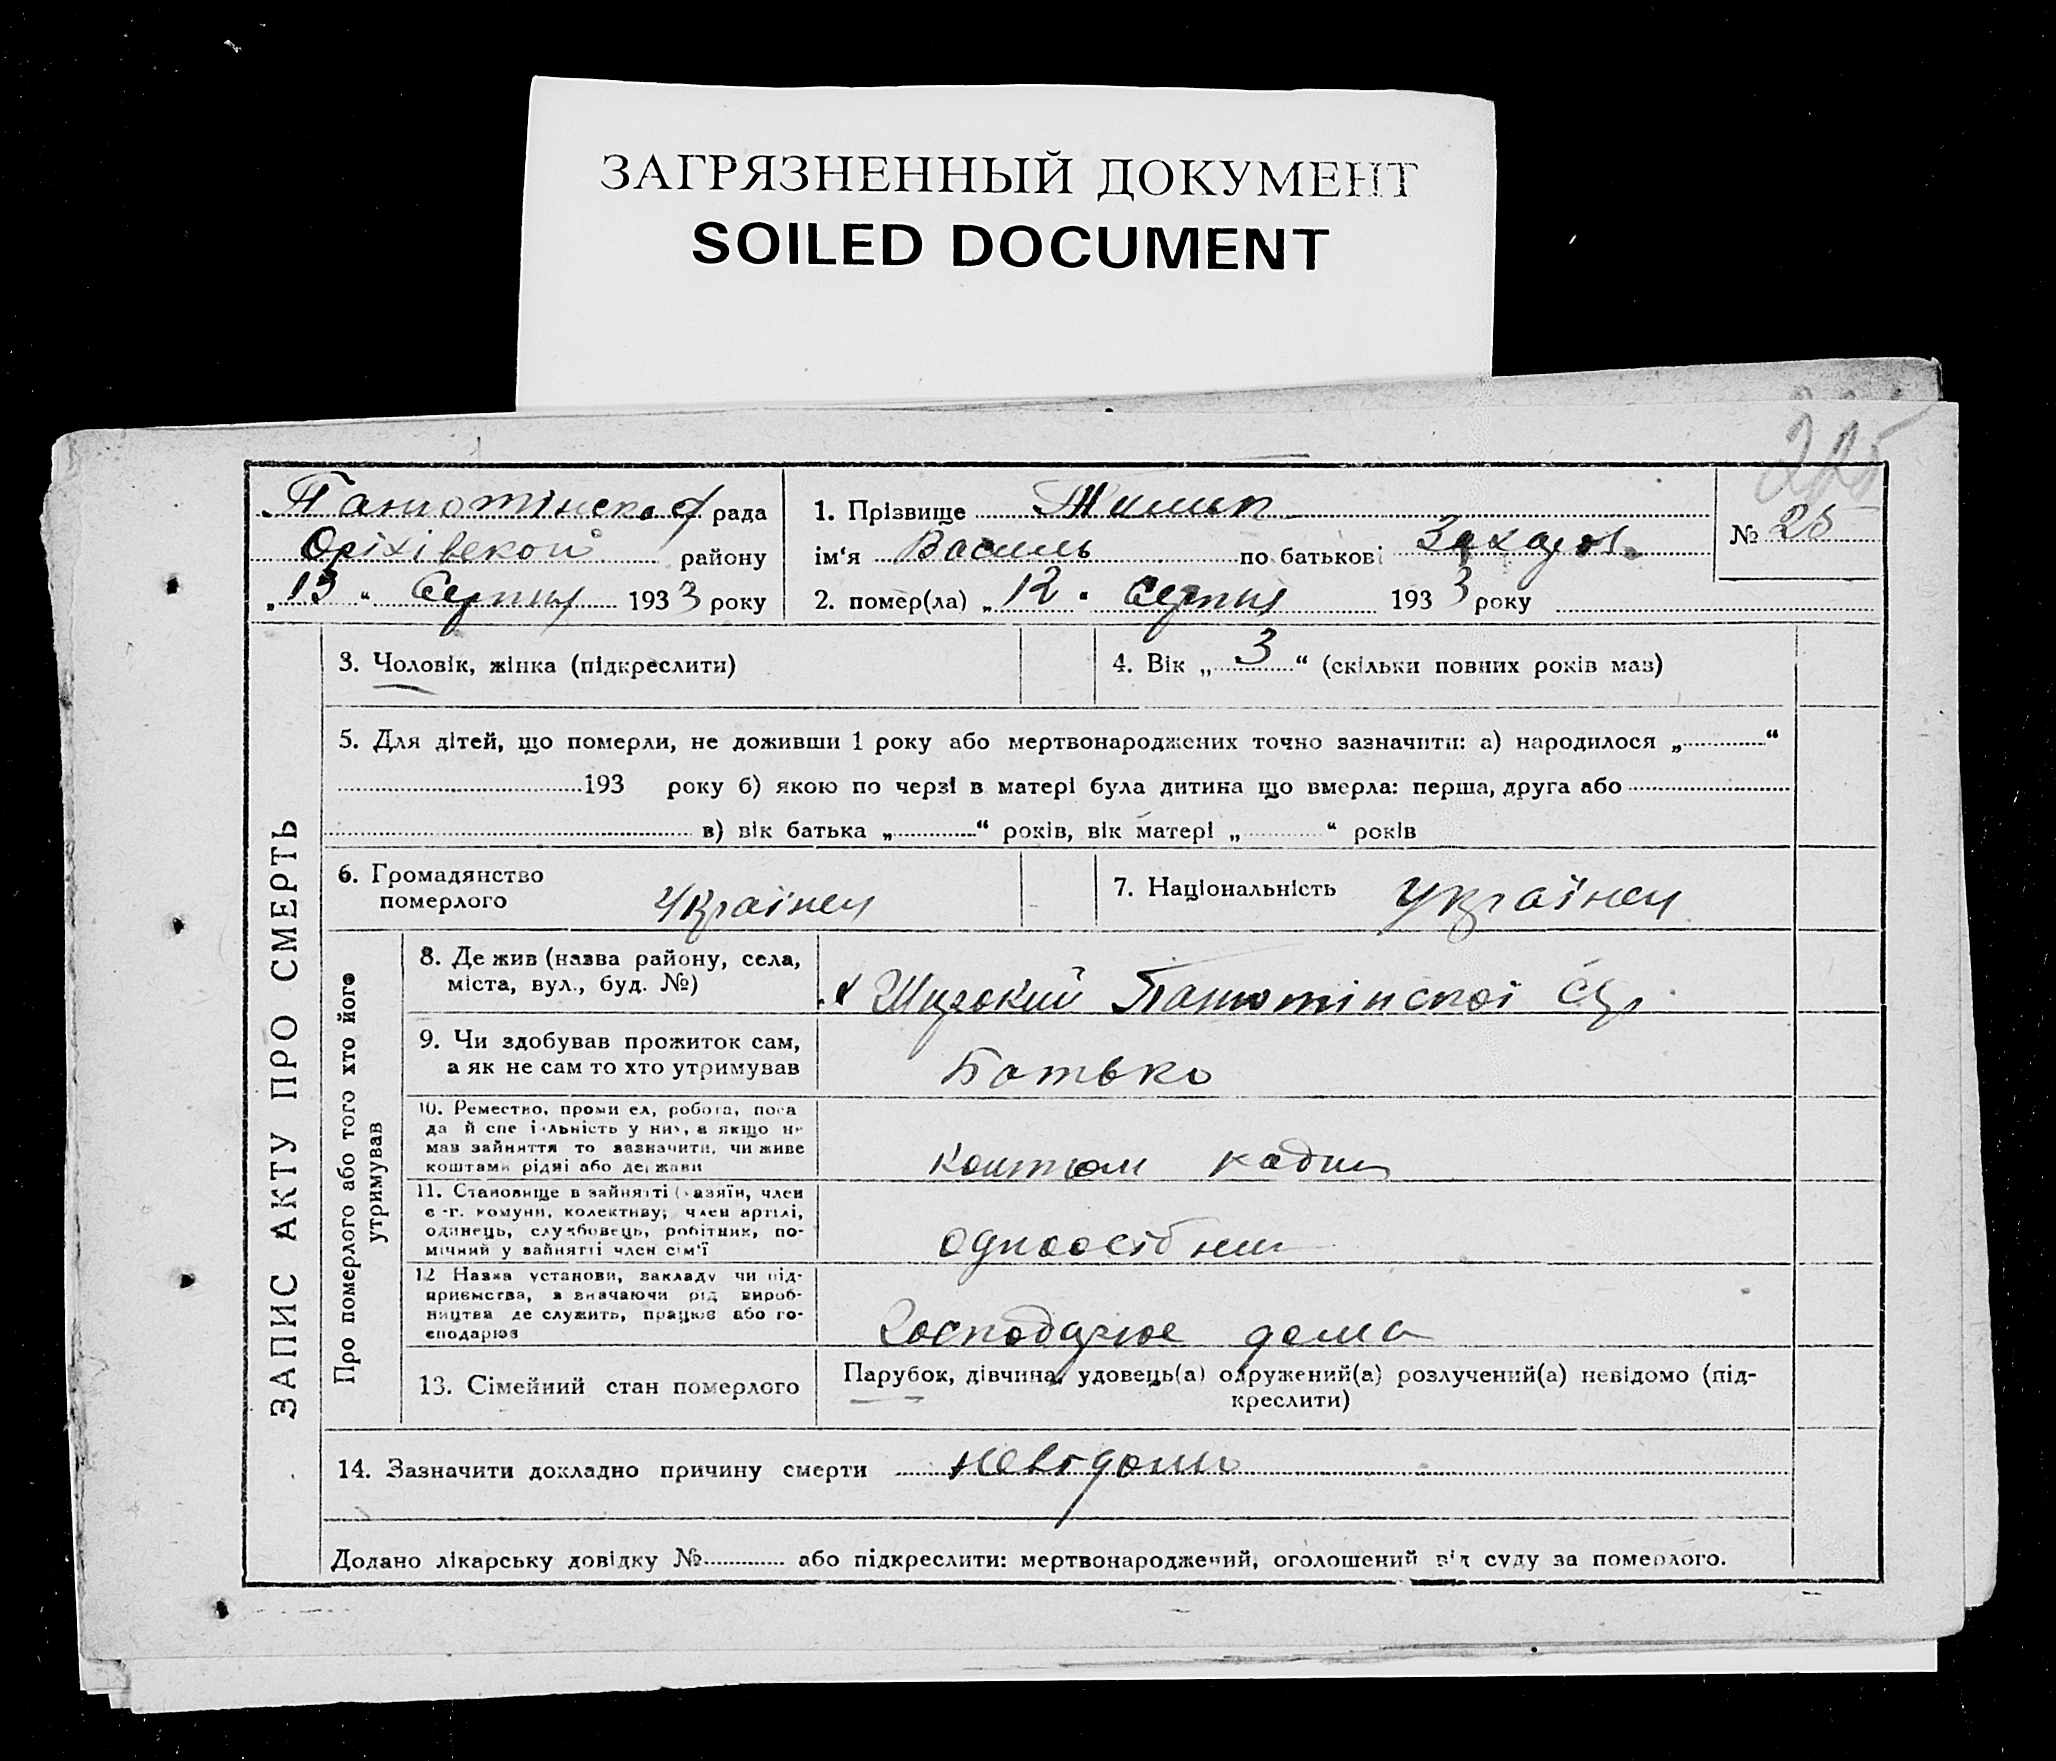 ЗАГРЯЗНЕННЫЙ ДОКУМЕНТ
SOILED DOCUMENT
225
рада
Оріхівської району
„13“ Серпня 1933 року
1. Прізвище
ім‘я Василь по батькові Захаров.
2. помер(ла) „12“ Серпня 1933 року
№ 25
ЗАПИС АКТУ ПРО СМЕРТЬ
3. Чоловік, жінка (підкреслити)
4. Вік „3“ (скільки повних років мав)
5. Для дітей, що померли, не доживши 1 року або мертвонароджених точно зазначити: а) народилося „ “
193 року б) якою по черзі в матері була дитина що вмерла: перша, друга або
в) вік батька „ “ років, вік матері „ “ років
6. Громадянство
померлого
Українец
7. Національність Українец
Про померлого або того хто його
утримував
8. Де жив (назва району, села,
міста, вул., буд. №)
х Широкий Панютінскоі С/р
9. Чи здобував прожиток сам,
а як не сам то хто утримував
Батько
10. Ремество, проми ел, робота, поса
да й спе і льність у них, а якщо не
мав зайняття то зазначити, чи живе
коштами рідні або держави
коштом
11. Становище в зайнятті (хазяїн, член
с-г. комуни, колективу; член артілі,
одинець, службовець, робітник, по-
мічний у зайнятті член сім‘ї
одноосібник
12 Назва установи, закладу чи під-
приємства, з значаючи рід вироб-
ництва де служить, працює або го-
сподарює
Господарює дома
13. Сімейний стан померлого
Парубок, дівчина, удовець(а) одружений(а) розлучений(а) невідомо (під-
креслити)
14. Зазначити докладно причину смерти невідомо
Додано лікарську довідку № або підкреслити: мертвонароджений, оголошений від суду за померлого.